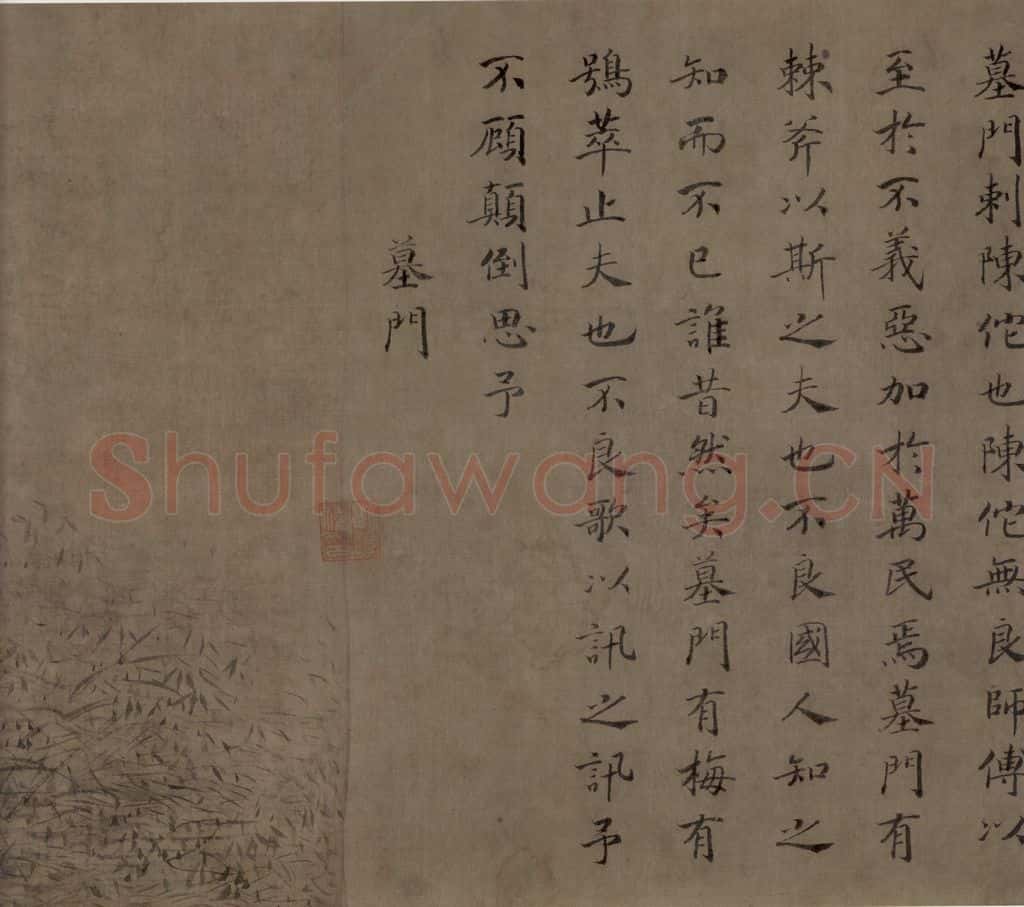 墓門刺陳佗也陳佗無良師傅以
至於不義惡加於萬民焉墓門有
棘斧以斯之夫也不良國人知之
知而不已誰昔然矣墓門有梅有
鴞萃止夫也不良歌以訊之訊予
不顧顛倒思予
墓門
Shufawang.CN